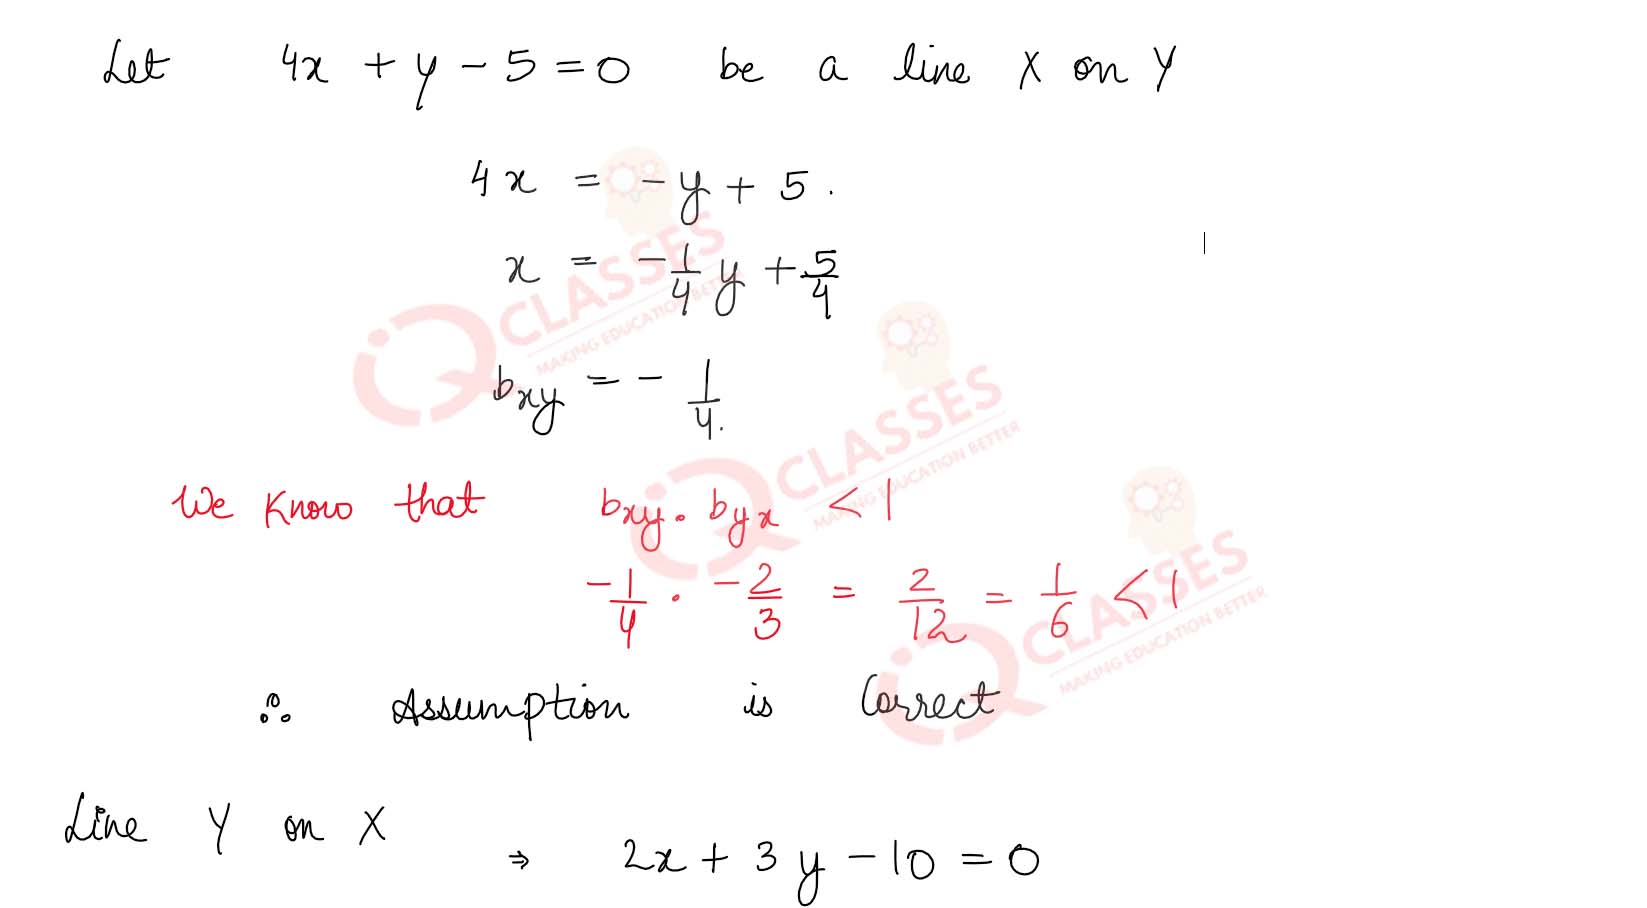 Let 4x + y - 5 = 0 be a line X on Y
4x = -y + 5.
x = -1/4 y + 5/4
bxy = - 1/4.
We know that bxy . byx < 1
-1/4 . -2/3 = 2/12 = 1/6 < 1
∴ Assumption is Correct
Line Y on X
⇒ 2x + 3y - 10 = 0
iQ CLASSES
MAKING EDUCATION BETTER
iQ CLASSES
MAKING EDUCATION BETTER
iQ CLASSES
MAKING EDUCATION BETTER